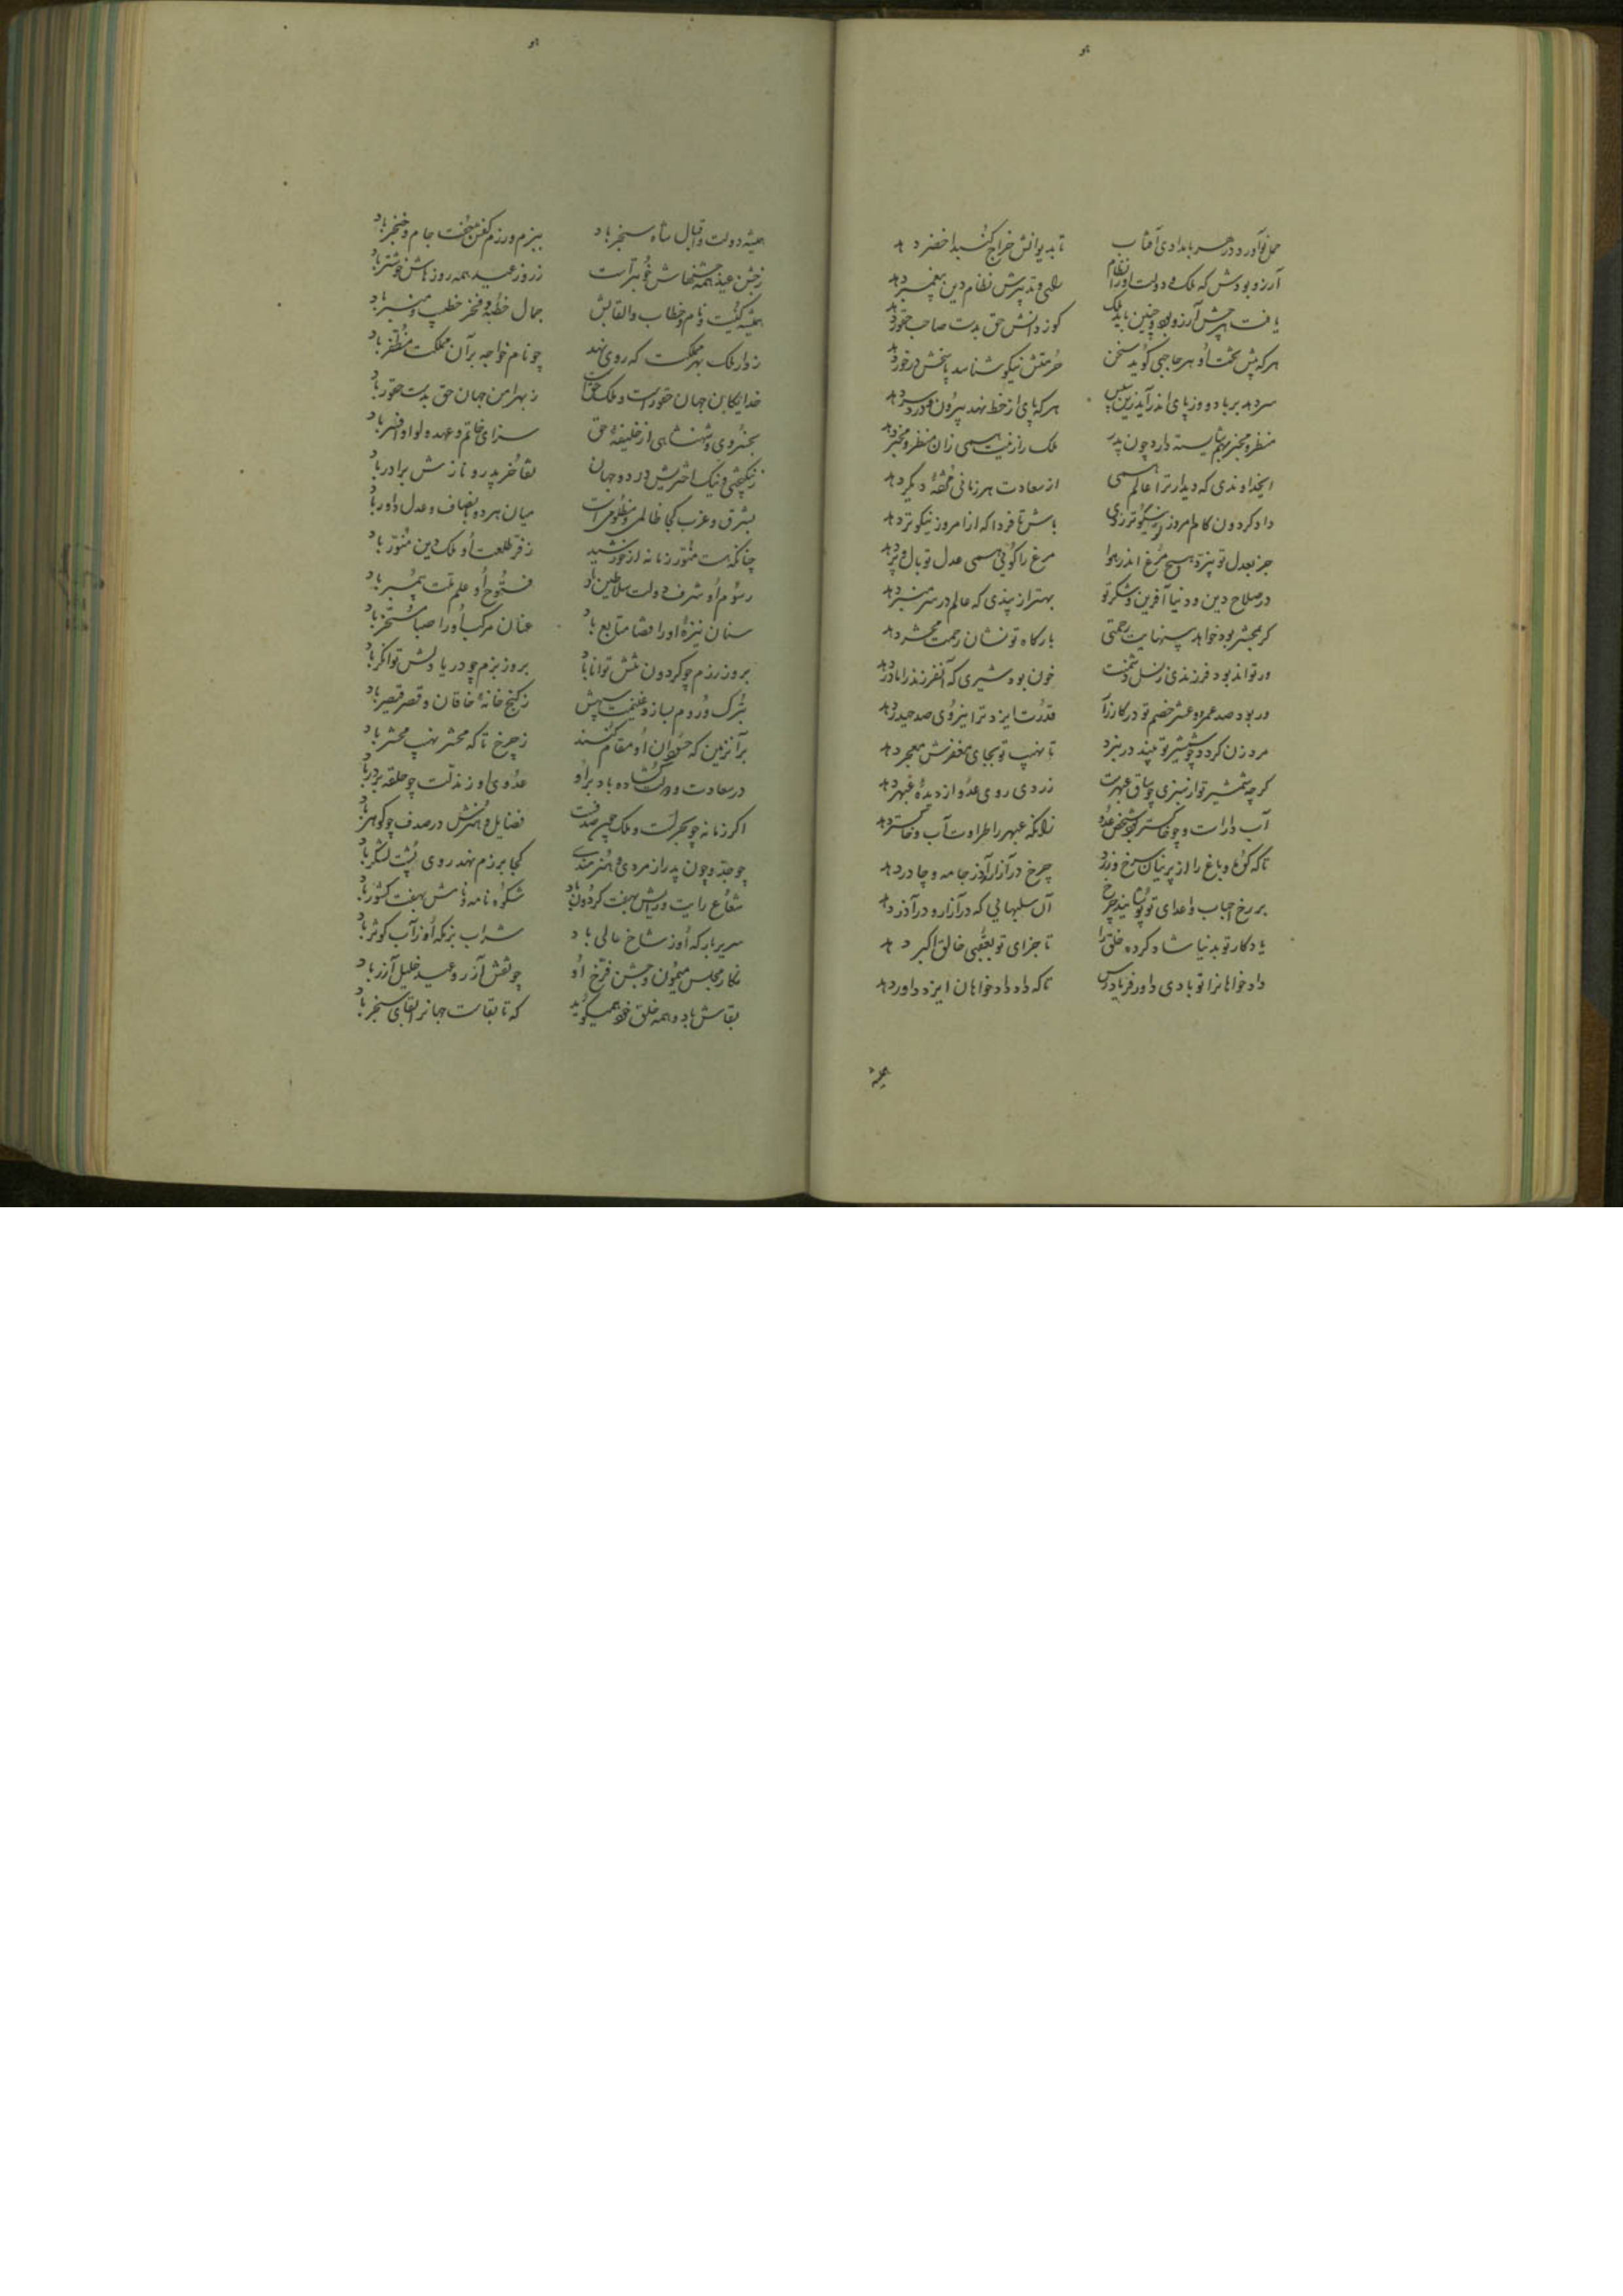 هو
حمل نو آورد در هر بامدادی آفتاب تا بدیوانش خراج گنبد اخضر دهد
آرزو بودش که ملک و دولت او را نظام رای و تدبیرش نظام دین پیغمبر دهد
یافت هرچش آرزو بود و چنین باید ملک کوز دانش حق بدست صاحب حقور دهد
هرکه پیش تخت او هر حاجبی گوید سخن حرمتش نیکو شناسد پاسخش درخور دهد
سر دهد بر باد و وز پای اندر آید زین سپس هرکه پای از خط نهد بیرون و دردسر دهد
منظر و مخبر بهم شایسته دارد چون پدر ملک را زینت همی زان منظر و مخبر دهد
ایخداوندی که دیدار ترا عالم همی از سعادت هر زمانی مژدهٔ دیگر دهد
داد گردون کام امروز نیکوتر ز دی باش تا فردا که از امروز نیکوتر دهد
جز بعدل تو نپرد هیچ مرغ اندر هوا مرغ را گوئی همی عدل تو بال و پر دهد
در صلاح دین و دنیا آفرین و شکر تو بهتر از پندی که عالم در سر منبر دهد
گر بمحشر بود خواهد بینهایت رحمتی بارگاه تو نشان رحمت محشر دهد
ور تواند بود فرزندی ز نسل دشمنت خون بود شیری که آنفرزند را مادر دهد
ور بود صد عمرو و عنتر خصم تو در کارزار قدرت ایزد ترا نیروی صد حیدر دهد
مرد زن گردد چو شمشیر تو بیند در نبرد تا نهیب تو بجای مغفرش معجر دهد
گرچه شمشیر تو از سبزی چو ساق عبهرست زردی روی عدو از دیدهٔ عبهر دهد
آب دارات و چو خاکستر کند شخص عدو زانکه عبهر را طراوت آب و خاکستر دهد
تا که کوه و باغ را از پرنیان سرخ و زرد چرخ در آزار و آذر جامه و چادر دهد
بر رخ احباب و اعدای تو پوشانید چرخ آن سلبهایی که در آزار و در آذر دهد
یادگار تو بدنیا شاد کرده خلق را تا جزای تو بعقبی خالق اکبر دهد
دادخواهانرا تو بادی داور فریادرس تا که داد دادخواهان ایزد داور دهد
همیشه
هو
همیشه دولت و اقبال شاه سنجر باد ببزم و رزم کفش جفت جام و خنجر باد
ز جشن عید همه جشنهاش خوبتر است ز روز عید همه روزهاش خوشتر باد
همیشه کنیت و نام و خطاب و القابش جمال خطبه و فخر خطیب و منبر باد
ز دار ملک بهر مملکت که روی نهد چو نام خواجه بر آن مملکت مظفر باد
خدایگان جهان حقورست و ملک حق است ز بهر امن جهان حق بدست حقور باد
بخسروی و شهنشاهی از خلیفهٔ حق سزای خاتم و عهد و لوا و افسر باد
ز نیکبختی و نیک اختریش در دو جهان تفاخر پدر و نازش برادر باد
بشرق و غرب کجا ظالمی و مظلومی است میان هر دو بانصاف و عدل داور باد
چنانکه هست منور زمانه از خورشید ز فر طلعت او ملک و دین منور باد
رسوم او شرف دولت سلاطین باد فتوح او علم ملت پیمبر باد
سنان نیزهٔ او را قضا متابع باد عنان مرکب او را صبا مسخر باد
بروز رزم چو گردون تنش توانا باد بروز بزم چو دریا دلش توانگر باد
بترک و روم بساز و غنیمت سپهش ز گنج خانهٔ خاقان و قصر قیصر باد
بر آنزمین که حسودان او مقام کنند ز چرخ تا که محشر نهیب محشر باد
در سعادت و دولت گشاده باد بر او عدوی او ز مذلت چو حلقه بر در باد
اگر زمانه چو بحرست و ملک چون صدفست فضایل و هنرش در صدف چو گوهر باد
چو جد و چون پدر از مردی و هنرمندی کجا برزم نهد روی پشت لشکر باد
شعاع رایت و رایش بهفت گردون باد شکوه نامه و نامش بهفت کشور باد
سریر بارگه او ز شاخ عالی باد شراب بزمگه او ز آب کوثر باد
نگار مجلس میمون و جشن فرخ او چو نقش آزر و عید خلیل آزر باد
بقاش باد و همه خلق خود همیگوید که تا بقاست جهانرا بقای سنجر باد